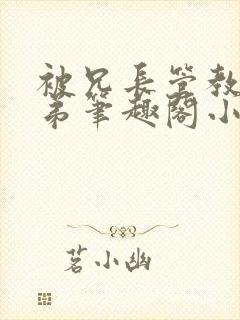 被兄長管教
弟筆趣閣小
茗小幽